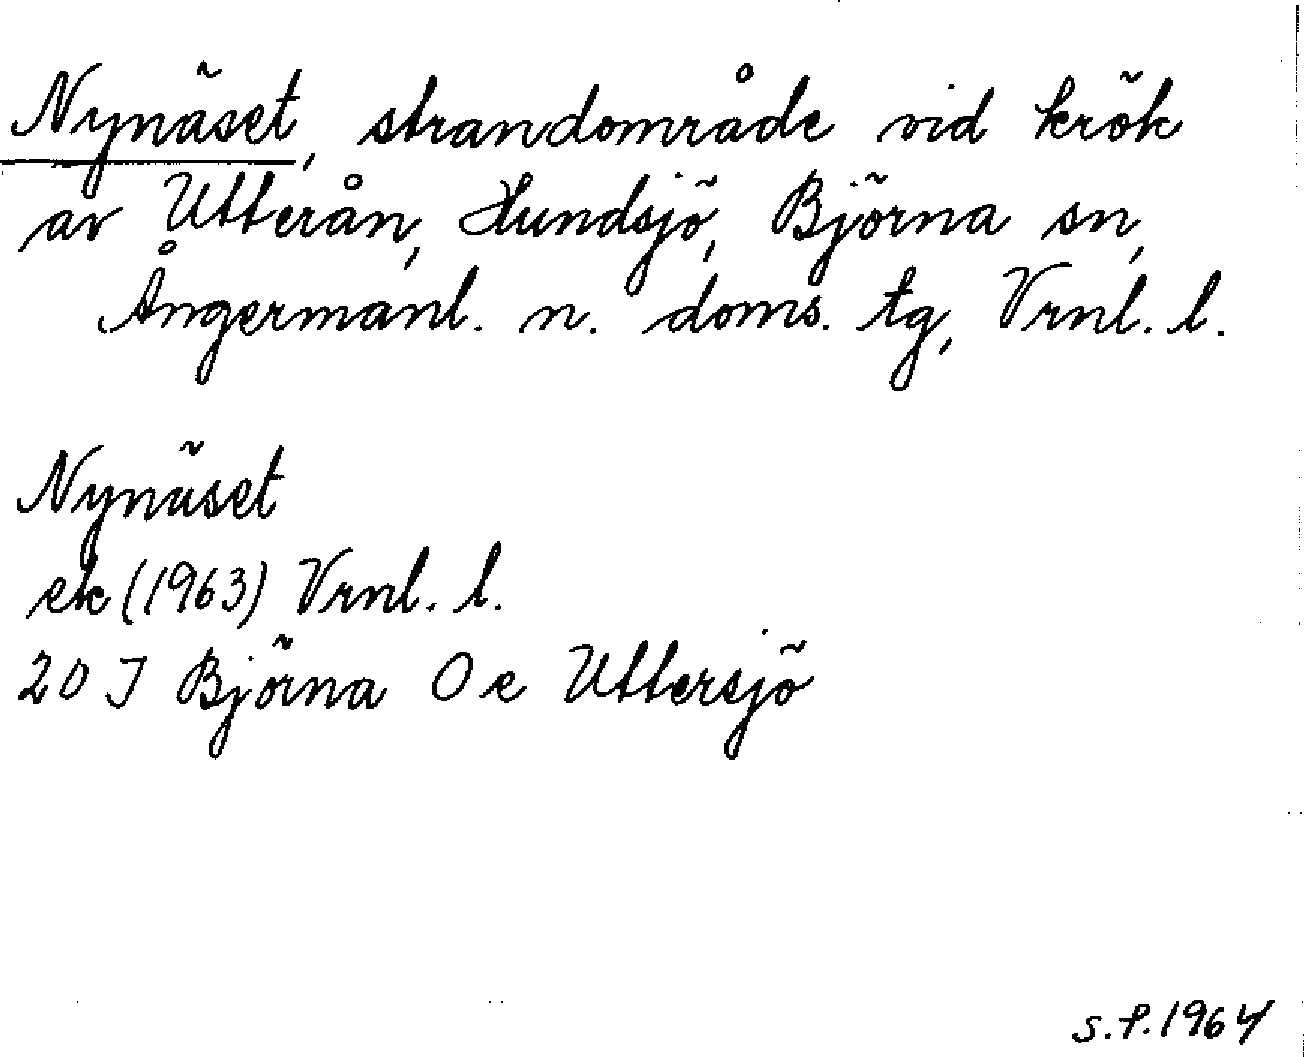 Nynäset, strandområde vid krök
av Utterån, Hundsjö, Björna sn,
Ångermanl. n. doms. tg, Vrnl. l.
Nynäset
ek (1963) Vrnl. l.
20 J Björna O e Uttersjö
S.P. 1964